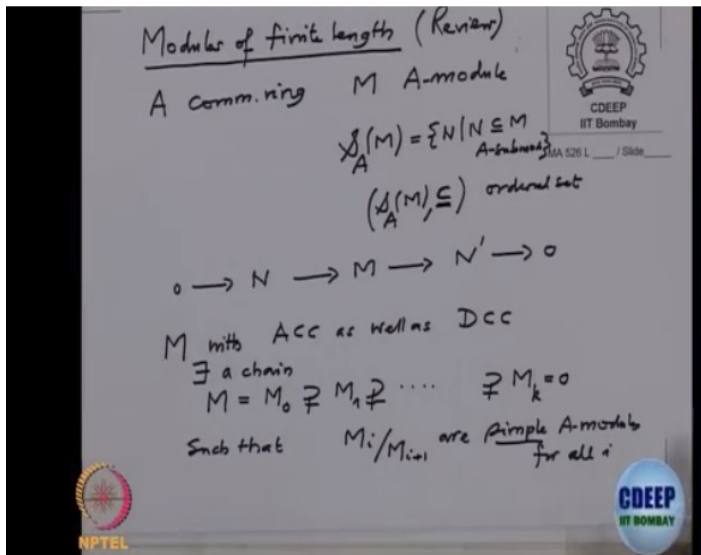 Modules of finite length (Review)
A comm. ring M A-module
𝒮_A(M) = {N | N ⊆ M
A-submod}
(𝒮_A(M), ⊆) ordered set
0 → N → M → N' → 0
M with ACC as well as DCC
∃ a chain
M = M₀ ⊋ M₁ ⊋ ···· ⊋ M_k = 0
Such that M_i/M_{i+1} are simple A-modules
for all i
CDEEP
IIT Bombay
MA 526 L ___ / Slide ___
NPTEL
CDEEP
IIT BOMBAY